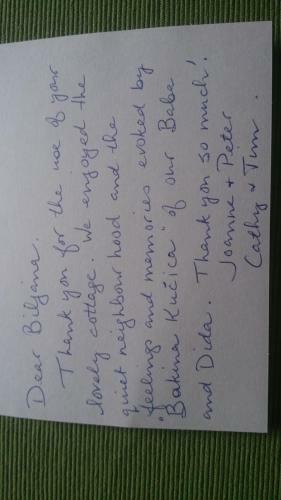 Dear Biljana.
Thank you for the use of your
lovely cottage. We enjoyed the
quiet neighbourhood and the
feelings and memories evoked by
"Bakina Kučica" of our Baba
and Dida. Thank you so much!
Joanne + Peter
Cathy + Tim.